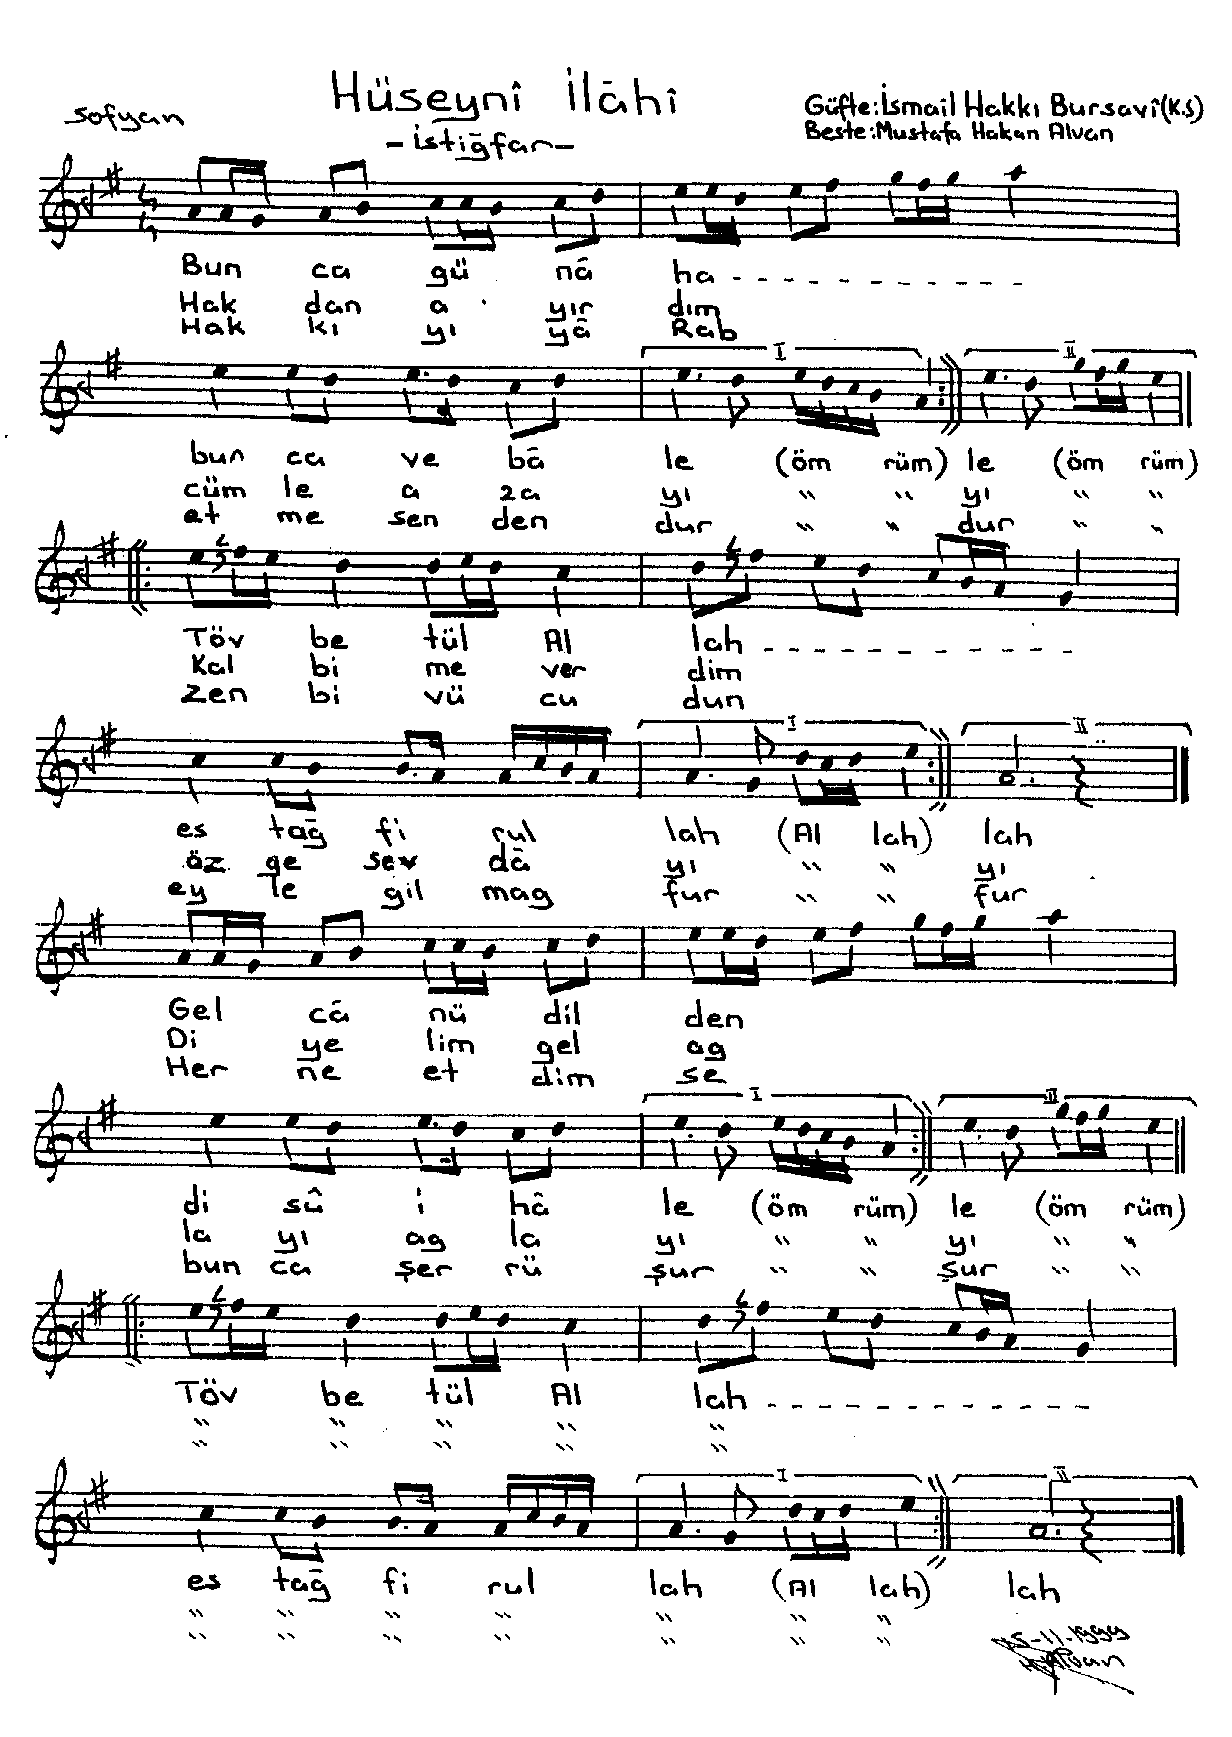 Hüseynî İlâhi
sofyan
-istiğfar-
Güfte:İsmail Hakkı Bursavî(K.S)
Beste:Mustafa Hakan Alvan
Bun ca gü nâ ha - - - - - - - - - - - -
Hak dan a yır dım
Hak kı yı yâ Rab
I II
bun ca ve bâ le (öm rüm) le (öm rüm)
cüm le a za yı " " yı " "
et me sen den dur " " dur " "
Töv be tül Al lah - - - - - - - - - - - -
Kal bi me ver dim
Zen bi vü cu dun
I II
es tağ fi rul lah (Al lah) lah
öz ge sev dâ yı " " yı
ey le gil mag fur " " fur
Gel câ nü dil den
Di ye lim gel ag
Her ne et dim se
I II
di sû i hâ le (öm rüm) le (öm rüm)
la yı ag la yı " " yı " "
bun ca şer rü şur " " şur " "
Töv be tül Al lah - - - - - - - - - - - -
" " " " "
" " " " "
I II
es tağ fi rul lah (Al lah) lah
" " " " " " "
" " " " " " "
15-11-1999
H.Alvan